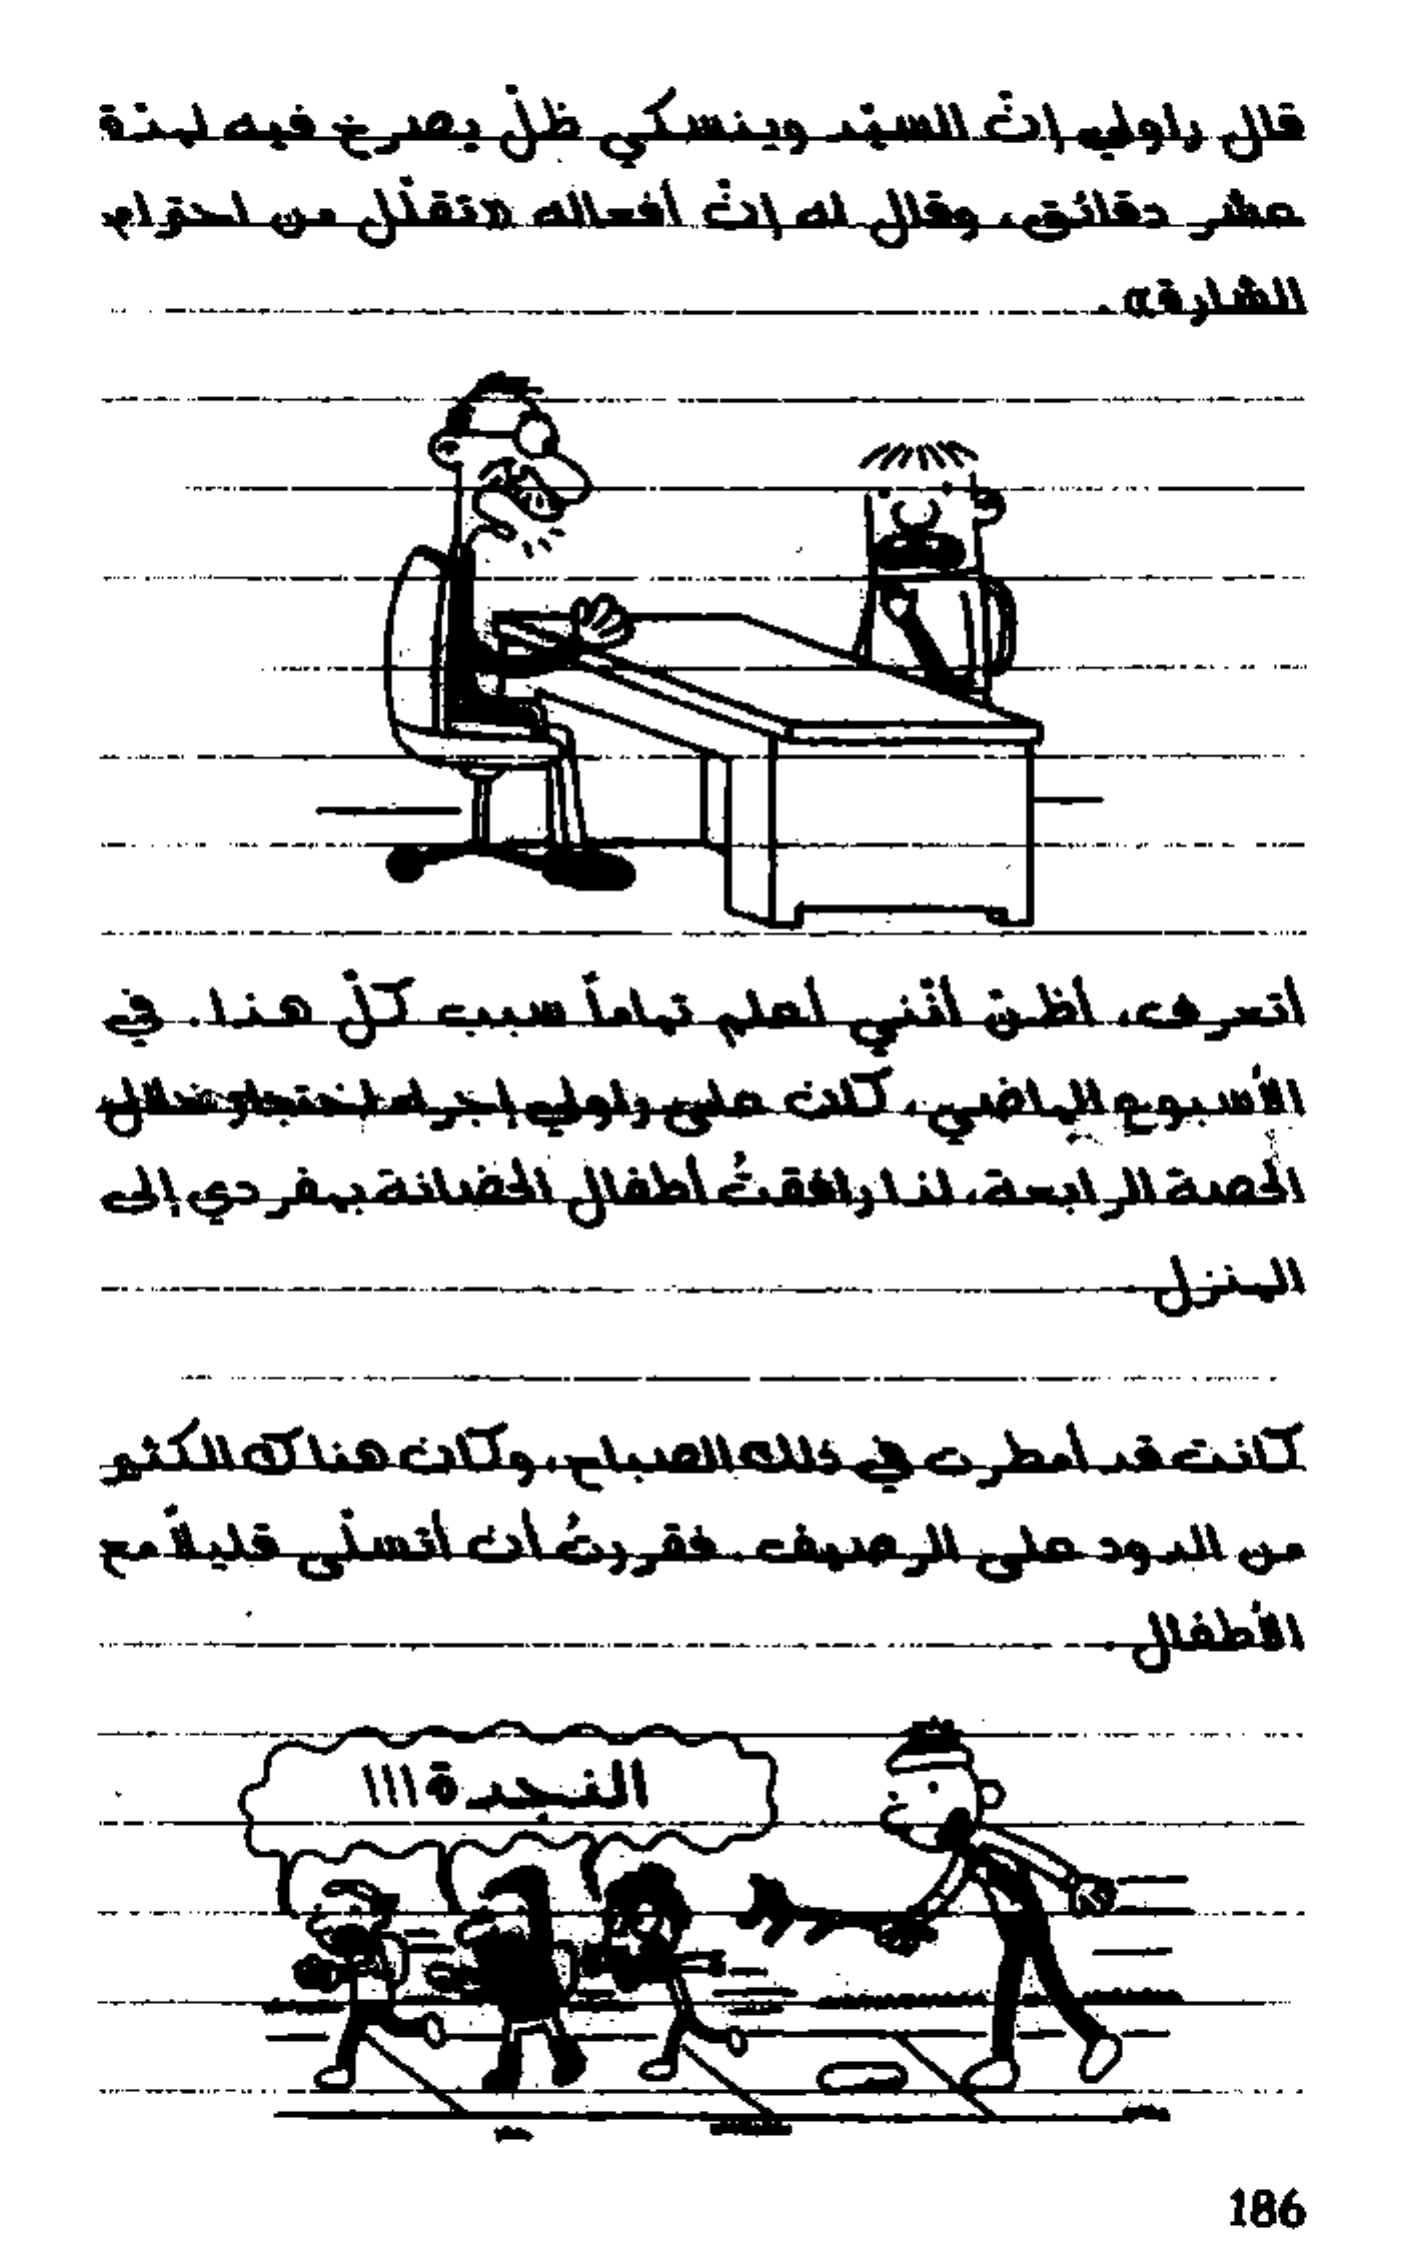 قال راولي إنّ السيّد وينسكي ظلّ يصرخ فيه لمدّة
عشر دقائق، وقال له إنّ أفعاله «تقلّل من احترام
الشارة».
أتعرف، أظنّ أنّني أعلم تماماً سبب كلّ هذا. في
الأسبوع الماضي، كان على راولي إجراء اختبار خلال
الحصة الرابعة، لذا رافقتُ أطفال الحضانة بمفردي إلى
المنزل
كانت قد أمطرت في ذلك الصباح، وكان هناك الكثير
من الدود على الرصيف. فقررتُ أن أتسلّى قليلاً مع
الأطفال.
النجدة!!!
186